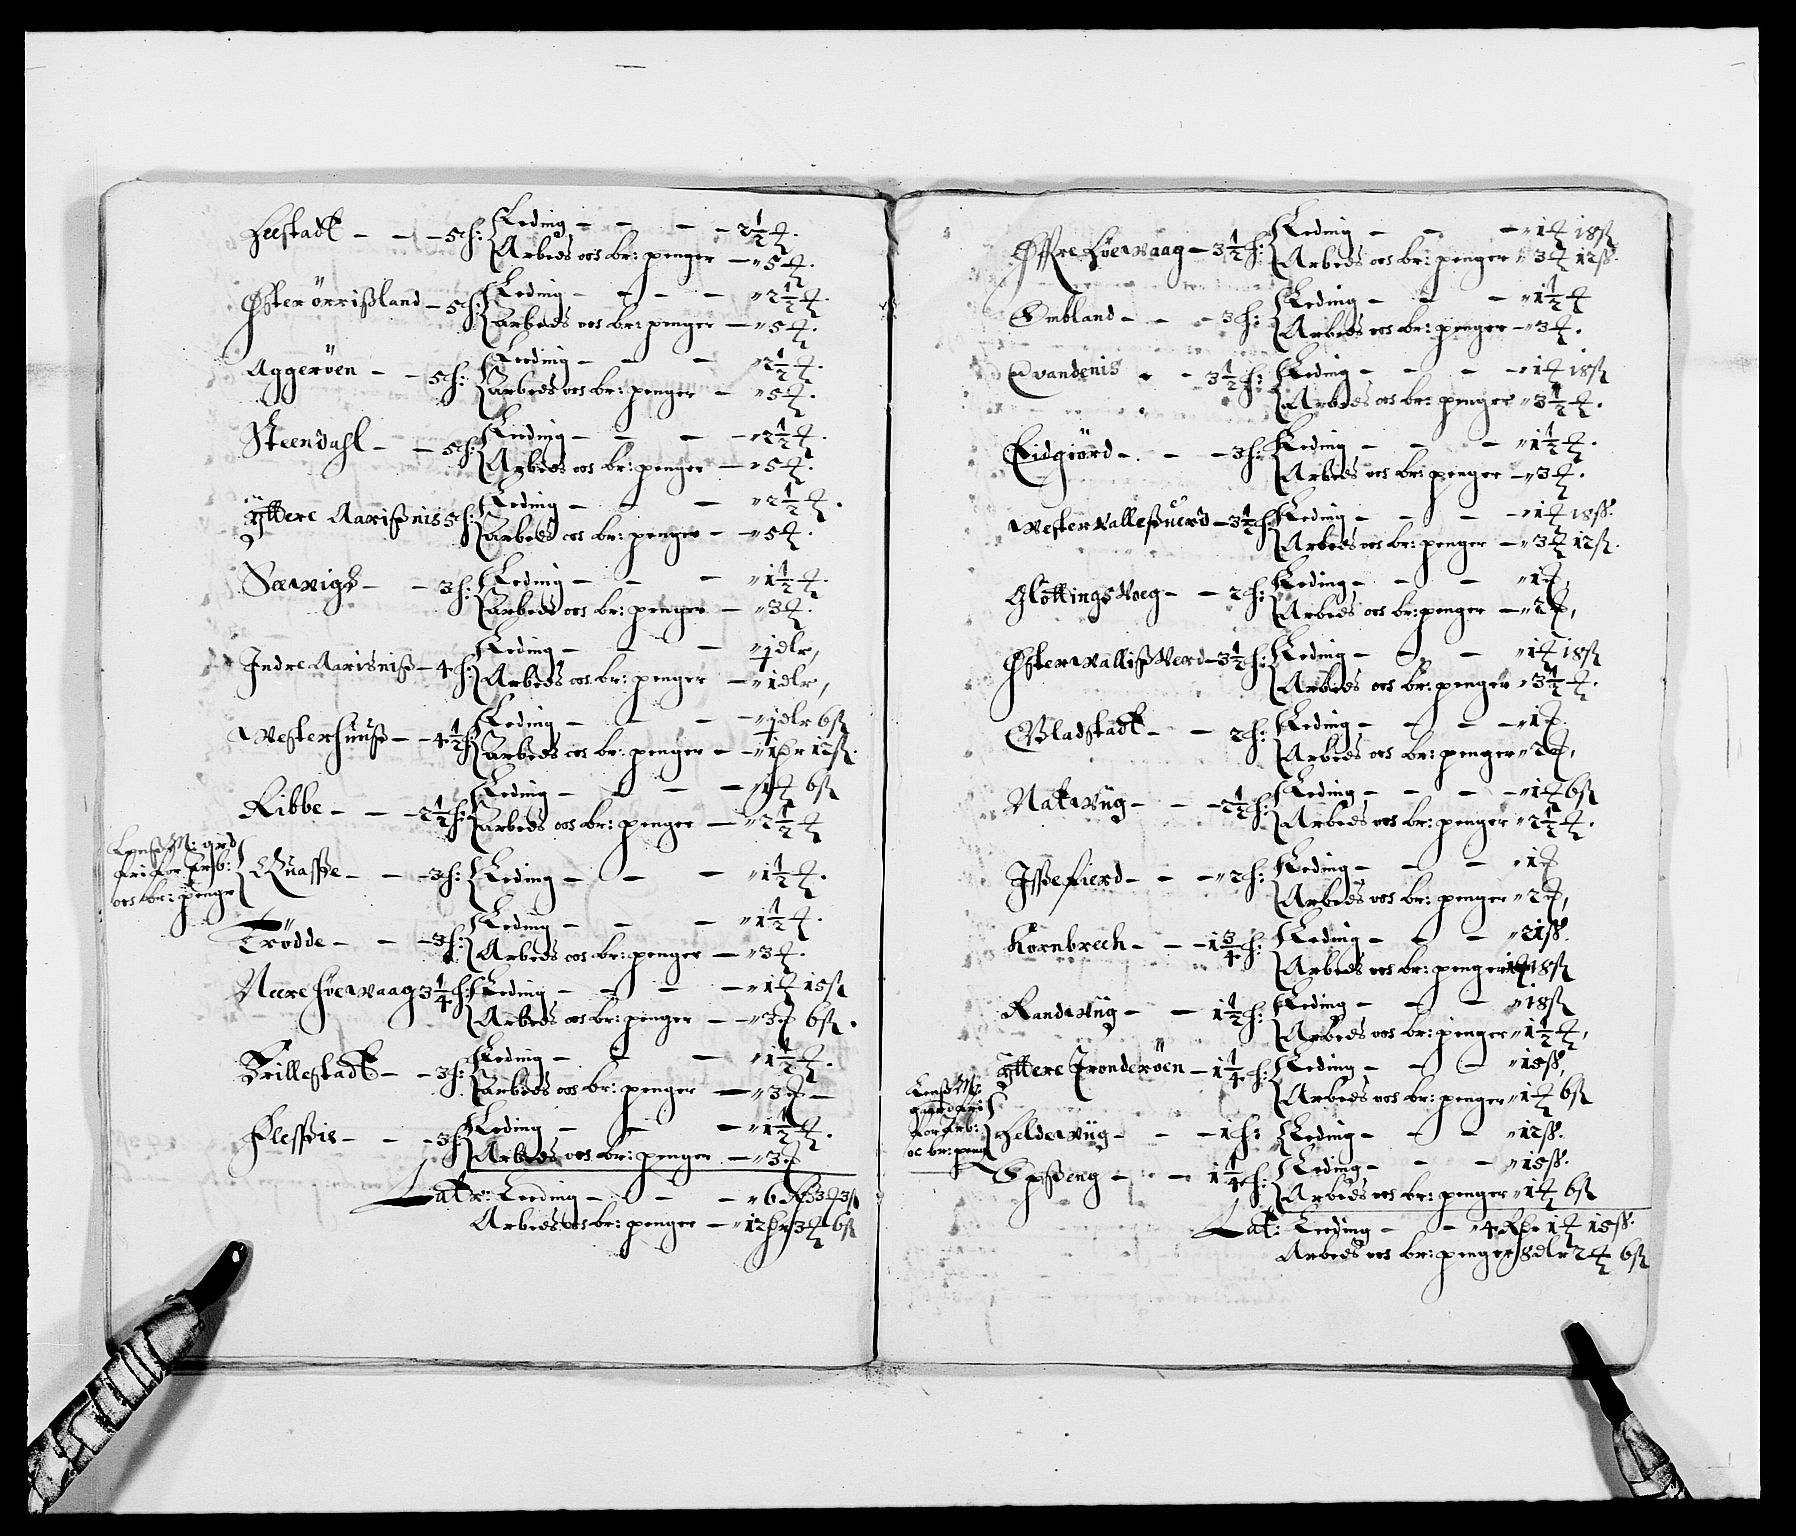 Heestadt - - - 5 h: Leding - - - - 2 1/2 ort.
Arbeds oc br: penger - " 5 ort.
Øster örrißland - 5 h: Leding - - - - " 2 1/2 ort.
Arbeds oc br: penger - " 5 ort.
Aggeröen - - 5 h: Leeding - - - " 2 1/2 ort.
Arbeds oc br: penger - " 5 ort.
Steendahl - - 5 h: Leeding - - - - " 2 1/2 ort.
Arbeds oc br: penger - " 5 ort.
Ÿttere Aarißnis 5 h: Leding - - - " 2 1/2 ort.
Arbeds oc br: penger - " 5 ort.
Sæwigh - - 3 h: Leding - - - " 1 1/2 ort.
Arbeds oc br: penger - " 3 ort.
Indre Aarisniß - 4 h: Leding - - - " 1 dlr,
Arbeds oc br: penger - " 1 dlr,
Westerhuuß - - 4 1/2 h: Leding - - - " 1 dlr 6 ß
Arbeds oc br: penger - " 1 dr 12 ß.
Ribbe - - - 2 1/2 h: Leding - - - - " 1 ort 6 ß
Arbeds oc br: penger - " 2 1/2 ort
Lenß M: grd
fri for Arb:
oc br: penge
Quasse - - - 3 h: Leding - - - " 1 1/2 ort.
Trødde - - - 3 h: Leding - - - " 1 1/2 ort.
Arbeds oc br: penger - " 3 ort.
Neere Høewaag 3 1/4 h: Leding - - - - " 1 ort 15 ß
Arbeds oc br: penger - - " 3 ort 6 ß.
Trillestadt - - 3 h: Leding - - - " 1 1/2 ort.
Arbeds oc br: penger - " 3 ort -
Flessvis - - - 3 h: Leding - - - " 1 1/2 ort.
Arbeds oc br: penger - " 3 ort
Latr: Leeding - - - " 6 Rdr 3 ort 3 ß
Arbeds oc br: penger - " 12 dr 3 ort 6 ß
Øffre Høewaag - 3 1/2 h: Leding - - - " 1 ort 18 ß
Arbeds oc br: penger " 3 ort 12 ß.
Ombland - - - 3 h: Leding - - - " 1 1/2 ort
Arbeds oc br: penger - " 3 ort.
Qvandenis - - 3 1/2 h: Leding - - - - " 1 ort 18 ß
Arbeds oc br: penger " 3 1/2 ort.
Eidgiørd - - - 3 h: Leding - - - " 1 1/2 ort.
Arbeds oc br: penger - " 3 ort.
Wester Valleßuerd - 3 1/2 h: Leding - - - - " 1 ort 18 ß.
Arbeds oc br: penger - " 3 ort 12 ß.
Gløttings Voeg - - 2 h: Leding - - - " 1 ort,
Arbeds oc br: penger - " 2 ort,
Øster Walliß Verd - 3 1/2 h: Leding - - - " 1 ort 18 ß
Arbeds oc br: penger " 3 1/2 ort.
Bladstadt - - 2 h: Leding - - - - " 1 ort.
Arbeds oc br: penger " 2 ort,
Natwiig - - - 2 1/2 h: Leding - - - - " 1 ort 6 ß
Arbeds oc br: penger " 2 1/2 ort.
Issefierd - - - " 2 h: Leding - - - " 1 ort
Arbeds oc br: penger " 2 ort,
Kornbrech - - - 1 3/4 h: Leding - - - " 21 ß.
Arbeds oc br: penger 1 ort 18 ß
Randwiig - - 1 1/2 h: Leding - - - " 18 ß
Arbeds oc br: penger " 1 1/2 ort,
Ÿttere Tronderöen - 1 1/4 h: Leding - - - " 15 ß,
Arbeds oc br: penger " 1 ort 6 ß
Lenß M:
gaard fri
for Arb:
oc br: peng
Heldewiig - - - 1 h: Leding - - - " 12 ß.
Opßeng - - - 1 1/4 h: Leding - - - " 15 ß.
Arbeds oc br: penger " 1 ort 6 ß
Lat: Leeding - - " 4 Rdr 1 ort 15 ß.
Arbeds oc br: penger 8 dlr 2 ort 6 ß